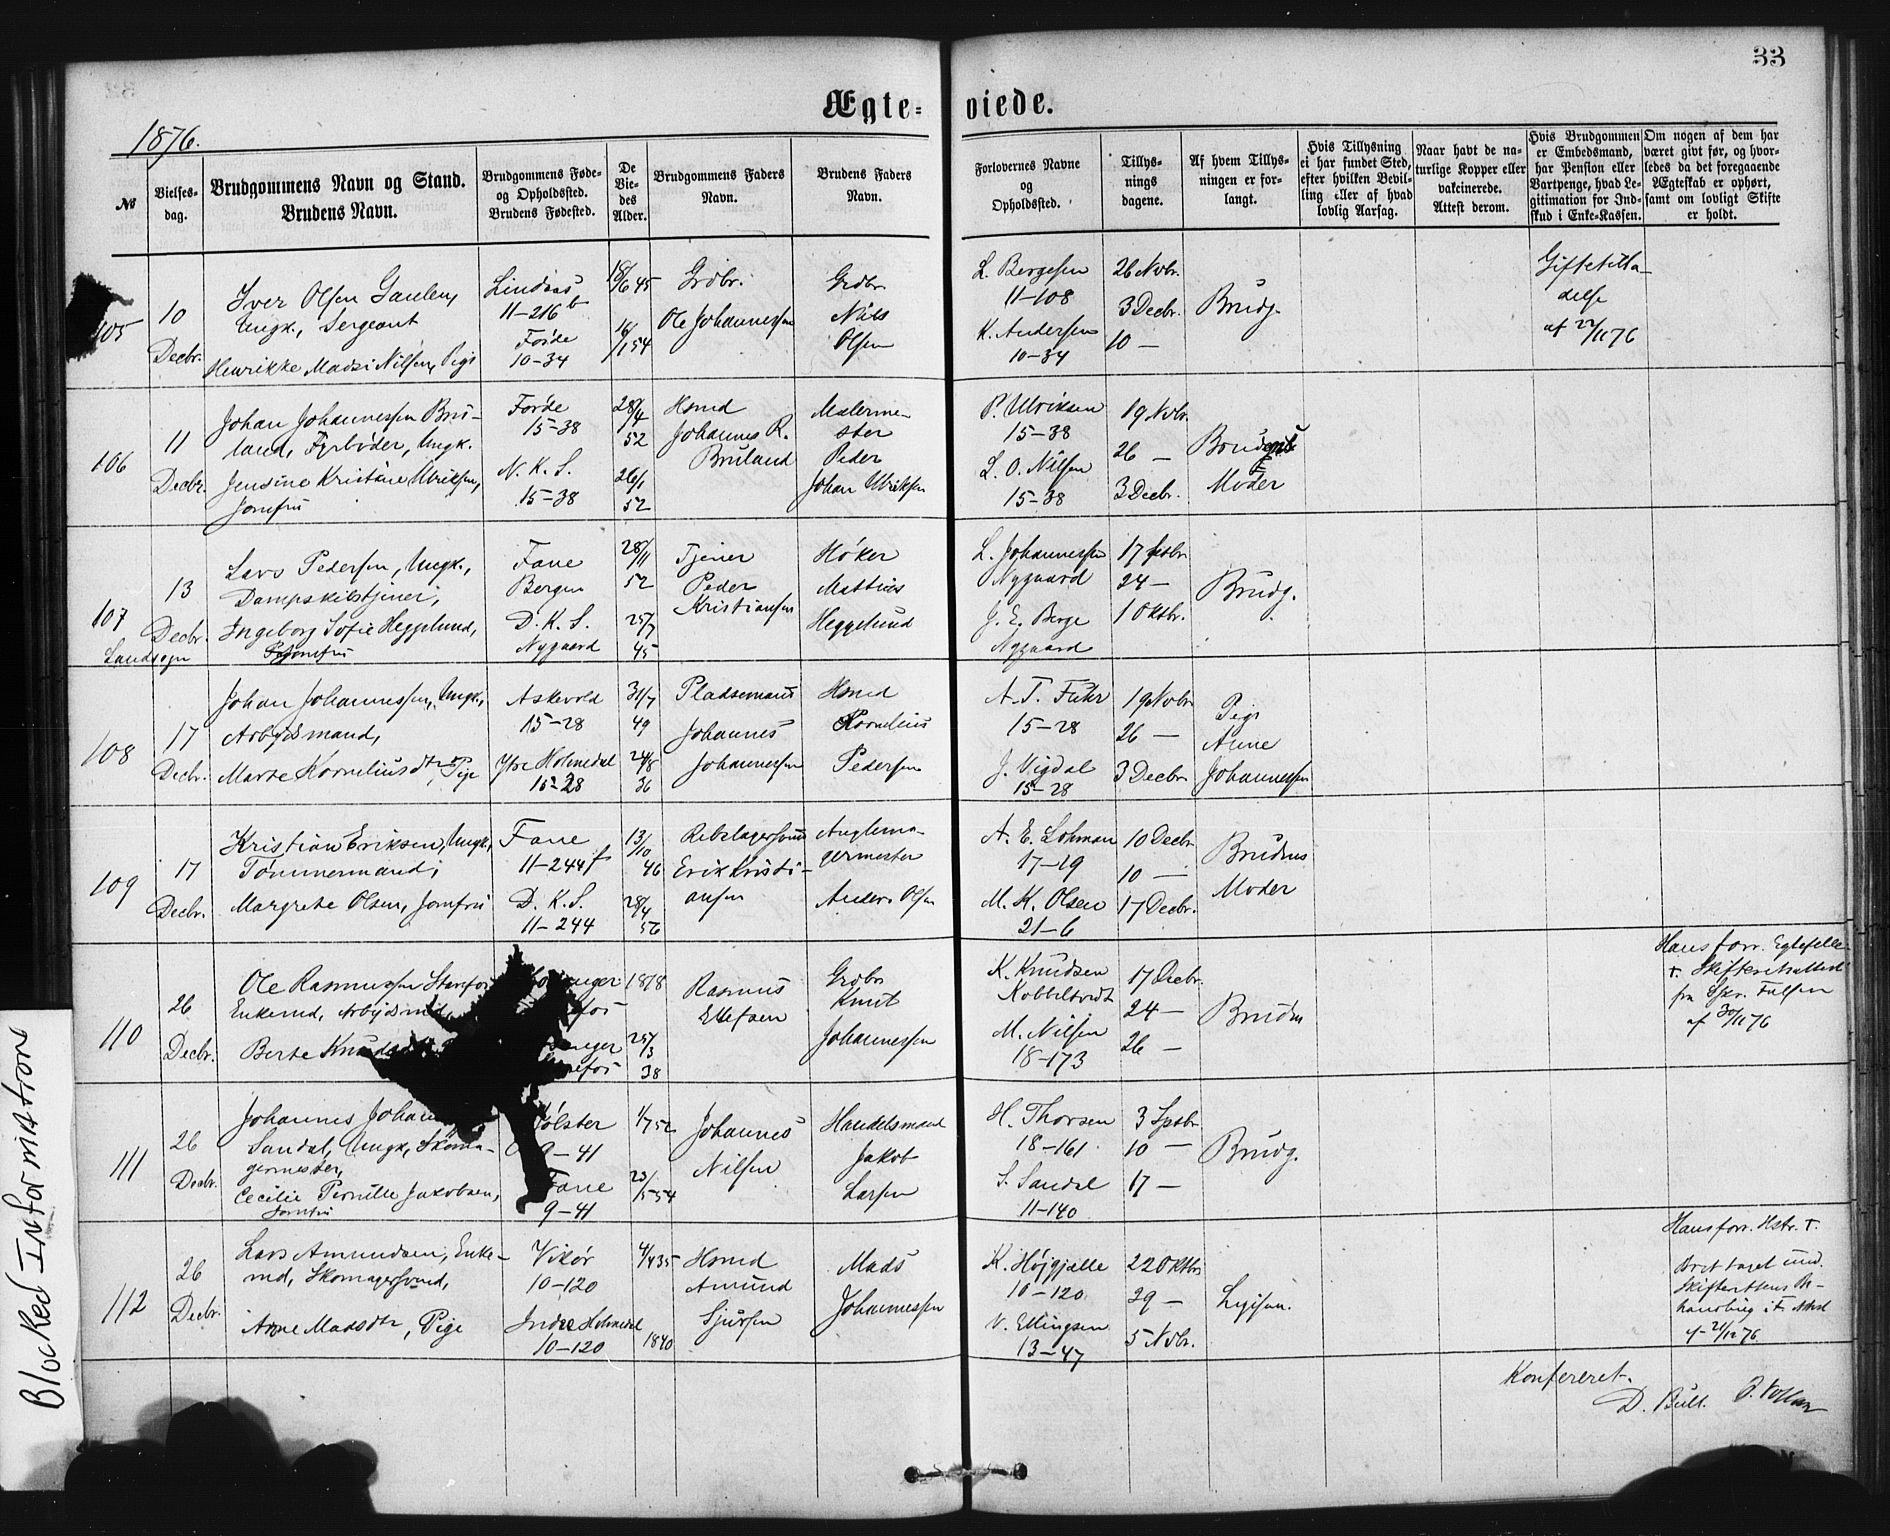 33
Ægte-
viede.
1876.
No
Vielses-
dag.
Brudgommens Navn og Stand.
Brudens Navn.
Brudgommens Føde-
og Opholdssted.
Brudens Fødested.
De
Vie-
des
Alder.
Brudgommens Faders
Navn.
Brudens Faders
Navn.
Forlovernes Navne
og
Opholdssted.
Tillys-
nings
dagene.
Af hvem Tillys-
ningen er for-
langt.
Hvis Tillysning
ei har fundet Sted,
efter hvilken Bevil-
ling eller af hvad
lovlig Aarsag.
Naar havt de na-
turlige Kopper eller
vakcinerede.
Attest derom.
Hvis Brudgommen
er Embedsmand,
har Pension eller
Vartpenge, hvad Le-
gitimation for Ind-
skud i Enke-Kassen.
Om nogen af dem har
været givt før, og hvor-
ledes da det foregaaende
Ægteskab er ophørt,
samt om lovligt Skifte
er holdt.
105
10
Decbr.
Iver Olsen
Ungk., Sergeant
Henrikke Madsi Nilsen, Pige
Lindaas
11-216 b
Førde
10-34
18/6 45
16/1 54
Grdbr.
Ole Johannessen
Grdbr
Nils
Olsen
L. Bergesen
11-108
K. Andersen
10-34
26 Nvbr.
3 Decbr.
10 —
Brudg.
Giftetilla-
delse
af 22/11 76
106
11
Decbr.
Johan Johannessen Bru-
land, Fyrbøder, Ungk.
Jensine Kristine Ulriksen,
Jomfru
Førde
15-38
N. K. S.
15-38
28/4
52
26/1
52
Hsmd
Johannes R.
Bruland
Malerme-
ster
Peder
Johan Ulriksen
P. Ulriksen
15-38
L. O. Nilsen
15-38
19 Nvbr.
26 —
3 Decbr.
Moder
107
Landsogn
13
Decbr.
Lars Pedersen, Ungk.,
Dampskibstjener,
Ingeborg Sofie Heggelund,
Jomfru
Fane
Bergen
D. K. S.
Nygaard
28/11
52
25/7
45
Tjener
Peder
Kristiansen
Høker
Mathias
Heggelund
L. Johannessen
Nygaard
J. E. Berge
Nygaard
17 Sptbr
24 —
1 Oktbr.
Brudg.
108
17
Decbr.
Johan Johannessen, Ungk.,
Arbejdsmand,
Marte Korneliusdtr, Pige
Askevold
15-28
Ytre Holmedal
15-28
31/7
49
24/8
36
Pladsemand
Johannes
Johannessen
Hsmd
Kornelius
Pedersen
A. T. Fuhr
15-28
J. Vigdal
15-28
19 Nvbr
26 —
3 Decbr
Pige
Anne
Johannessen
109
17
Decbr.
Kristian Eriksen, Ungk.,
Tømmermand,
Margrete Olsen, Jomfru
Fane
11-244 f
D. K. S.
11-244
13/10
46
28/4
56
Rebslagersvend
Erik Kristi-
ansen
Anglema-
germester
Anders Olsen
A. E. Lohman
17-19
M. K. Olsen
21-6
10 Decbr
10 —
17 Decbr.
Brudens
Moder
110
26
Decbr.
Ole Rasmussen
Enkemd, Arbejdsmd,
Berte
1818
25/3
38
Rasmus
Ellefsen
Grdbr
Knut
Johannessen
K. Knudsen
Kobbeltvedt
M. Nilsen
18-173
17 Decbr.
24 —
26 —
Bruden
Hans forr. Egtefelle
fra Spr. Falsen
af 30/11 76
111
26
Decbr.
Johannes
Sandal, Ungk., Skoma-
germester,
Cecilie Pernille Jakobsen,
Jomfru
Jølster
9-41
Fane
9-41
1/7 52
23/5 54
Johannes
Nilsen
Handelsmand
Jakob
Larsen
H. Thorsen
18-161.
S. Sandal
11-140
3 Sptbr
10 —
17 —
Brudg.
112
26
Decbr.
Lars Amundsen, Enke-
md, Skomagersvend,
Anne Madsdtr, Pige
Vikør
10-120
Indre Holmedal
10-120
4/4 35
1840
Hsmd
Amund
Sjursen
Mads
Johannessen
K. Højgjelle
10-120
V. Ellingsen
13-47
22 Oktbr
29 —
5 Nvbr.
Hans forr. Hstr. †.
Bret taget und.
Skifterettens Be-
handling
21/12 76
Konfereret.
D. Bull.
Blocked Information